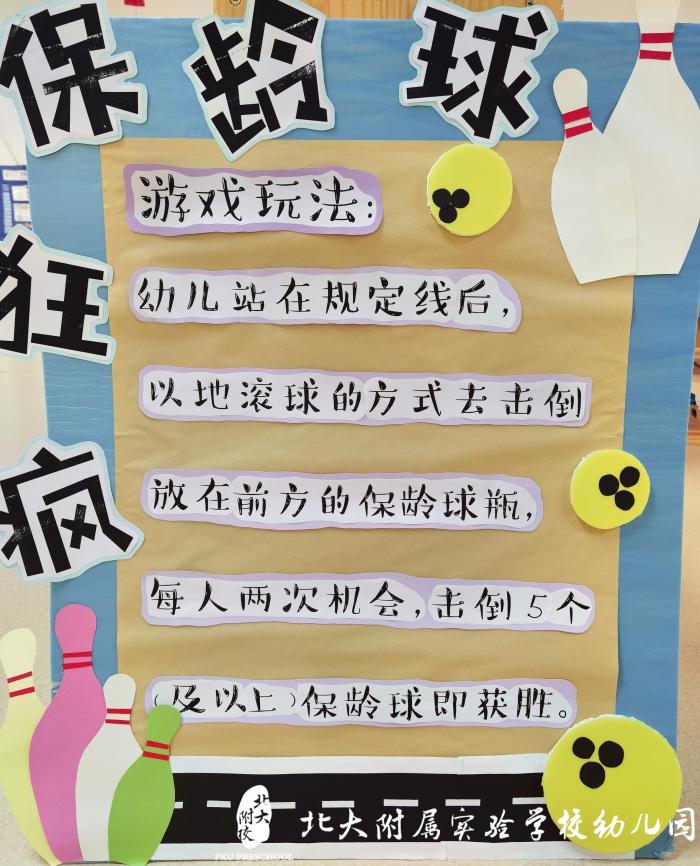 保龄球
狂
疯
游戏玩法:
幼儿站在规定线后,
以地滚球的方式去击倒
放在前方的保龄球瓶,
每人两次机会,击倒5个
(及以上)保龄球即获胜。
北大附校
PKU PRESCHOOL
北大附属实验学校幼儿园